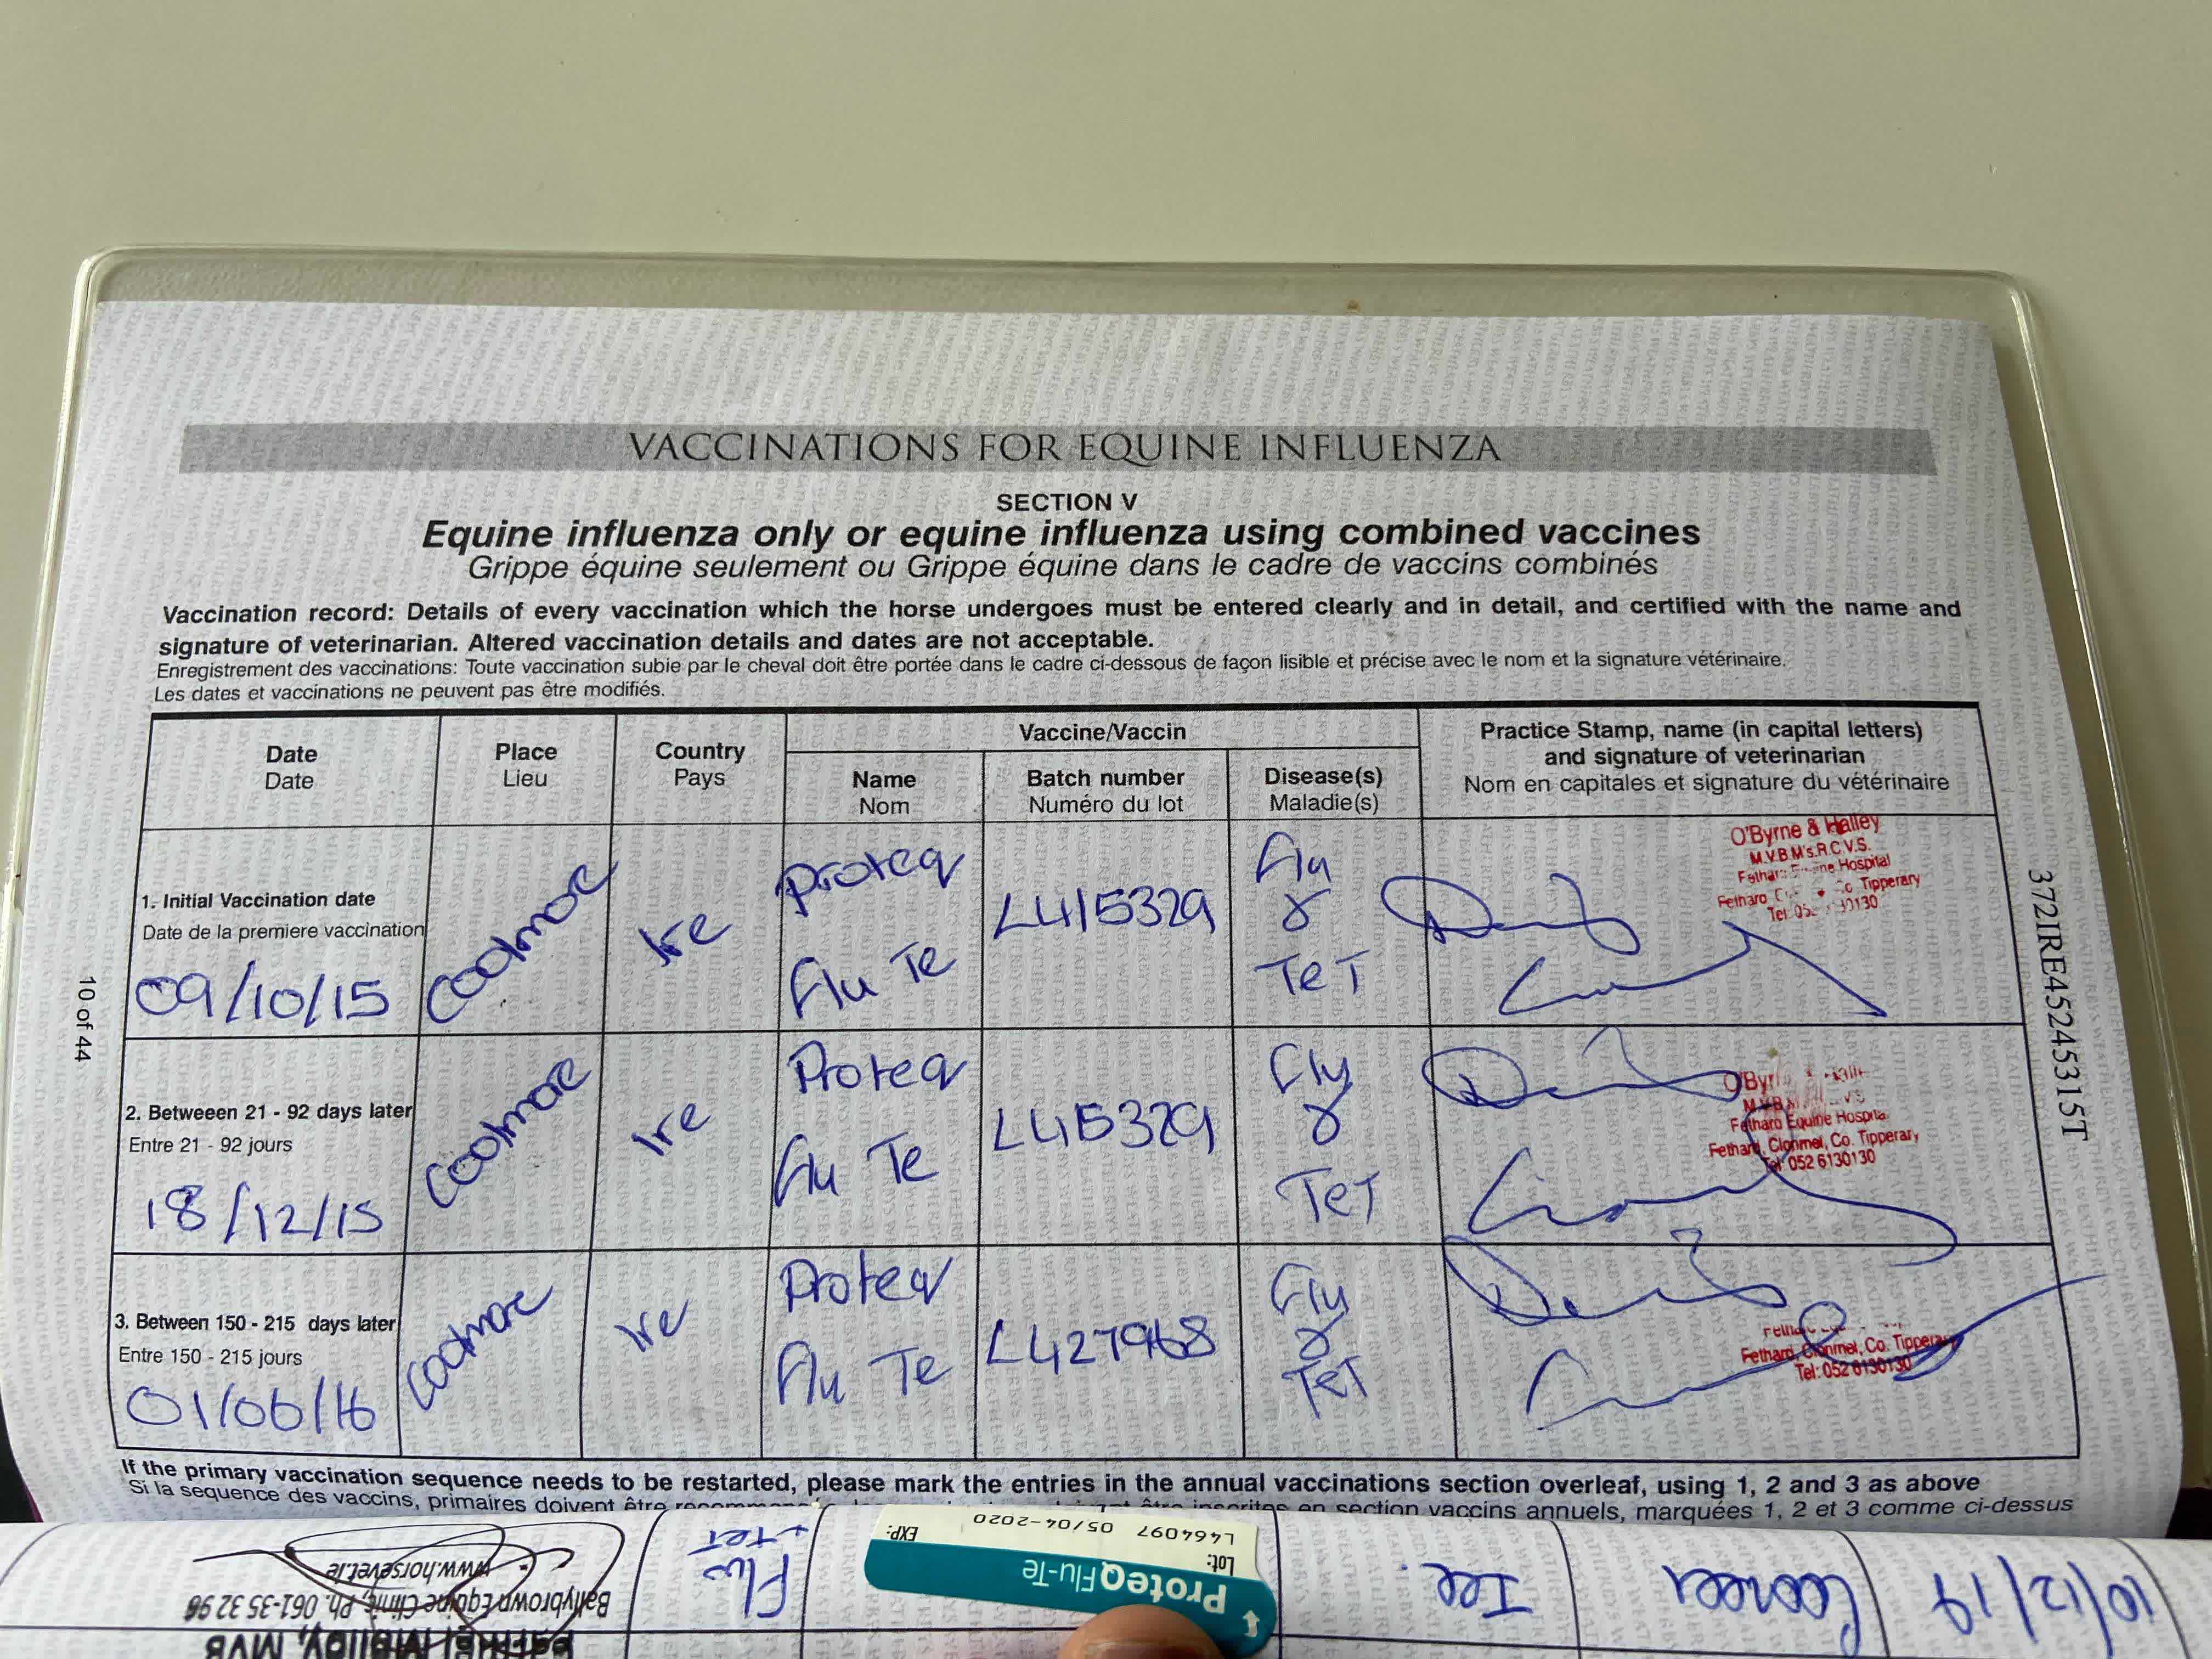 VACCINATIONS FOR EQUINE INFLUENZA
SECTION V
Equine influenza only or equine influenza using combined vaccines
Grippe équine seulement ou Grippe équine dans le cadre de vaccins combinés
Vaccination record: Details of every vaccination which the horse undergoes must be entered clearly and in detail, and certified with the name and
signature of veterinarian. Altered vaccination details and dates are not acceptable.
Enregistrement des vaccinations: Toute vaccination subie par le cheval doit être portée dans le cadre ci-dessous de façon lisible et précise avec le nom et la signature vétérinaire.
Les dates et vaccinations ne peuvent pas être modifiés.
Date
Date
Place
Lieu
Country
Pays
Vaccine/Vaccin
Name
Nom
Batch number
Numéro du lot
Disease(s)
Maladie(s)
Practice Stamp, name (in capital letters)
and signature of veterinarian
Nom en capitales et signature du vétérinaire
1. Initial Vaccination date
Date de la premiere vaccination
09/10/15
Coolmore
Ire
Proteq
Flu Te
L415329
Flu
&
TeT
O'Byrne & Halley
M.V.B M's.R.C.V.S.
Hospital
Co Tipperary
2. Betweeen 21 - 92 days later
Entre 21 - 92 jours
18/12/15
Coolmore
Ire
Proteq
Flu Te
L415329
Flu
&
TeT
Fethard Equine Hospital
Fethard, Clonmel, Co. Tipperary
Tel: 052 6130130
3. Between 150 - 215 days later
Entre 150 - 215 jours
01/06/16
Coolmore
Ire
Proteq
Flu Te
L427968
Flu
&
TeT
Fethard, Clonmel, Co. Tipperary
Tel: 052 6130130
If the primary vaccination sequence needs to be restarted, please mark the entries in the annual vaccinations section overleaf, using 1, 2 and 3 as above
Si la sequence des vaccins, primaires doivent être inscrites en section vaccins annuels, marquées 1, 2 et 3 comme ci-dessus
10 of 44
372IRE45245315T
10/12/19
Ire.
ProteqFlu-Te
Lot:
EXP:
L464097 05/04-2020
Flu
+ Tet
MVB
Ballybrown Equine Clinic, Ph. 061-35 32 96
www.horsevet.ie